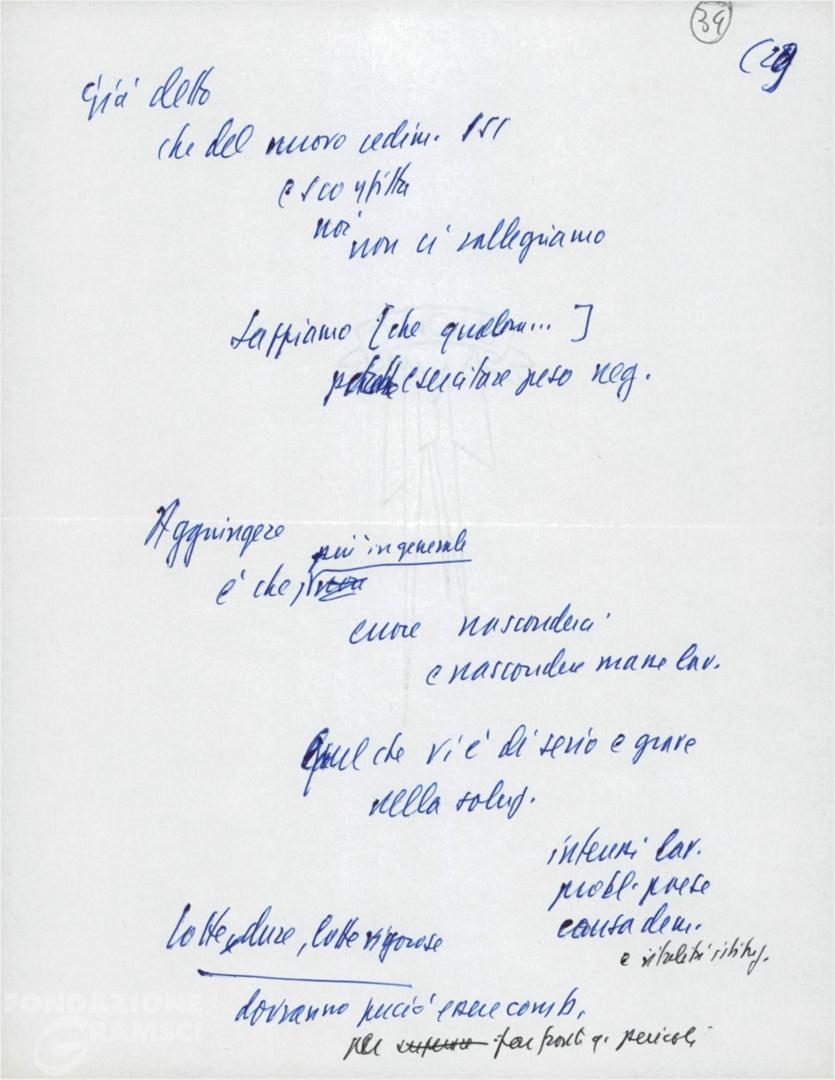 34
(29
Già detto
che del nuovo cedim. PSI
e sconfitta
noi
non ci rallegriamo
Sappiamo [che qualora... ]
esercitare peso neg.
Aggiungere
più in generale
è che, non
errore nasconderci
e nascondere masse lav.
Quel che vi è di serio e grave
nella soluz.
interessi lav.
probl. paese
causa dem.
e vitalità istituz.
Lotte dure, lotte rigorose
dovranno perciò essere comb.
per far fronte q. pericoli
FONDAZIONE
GRAMSCI